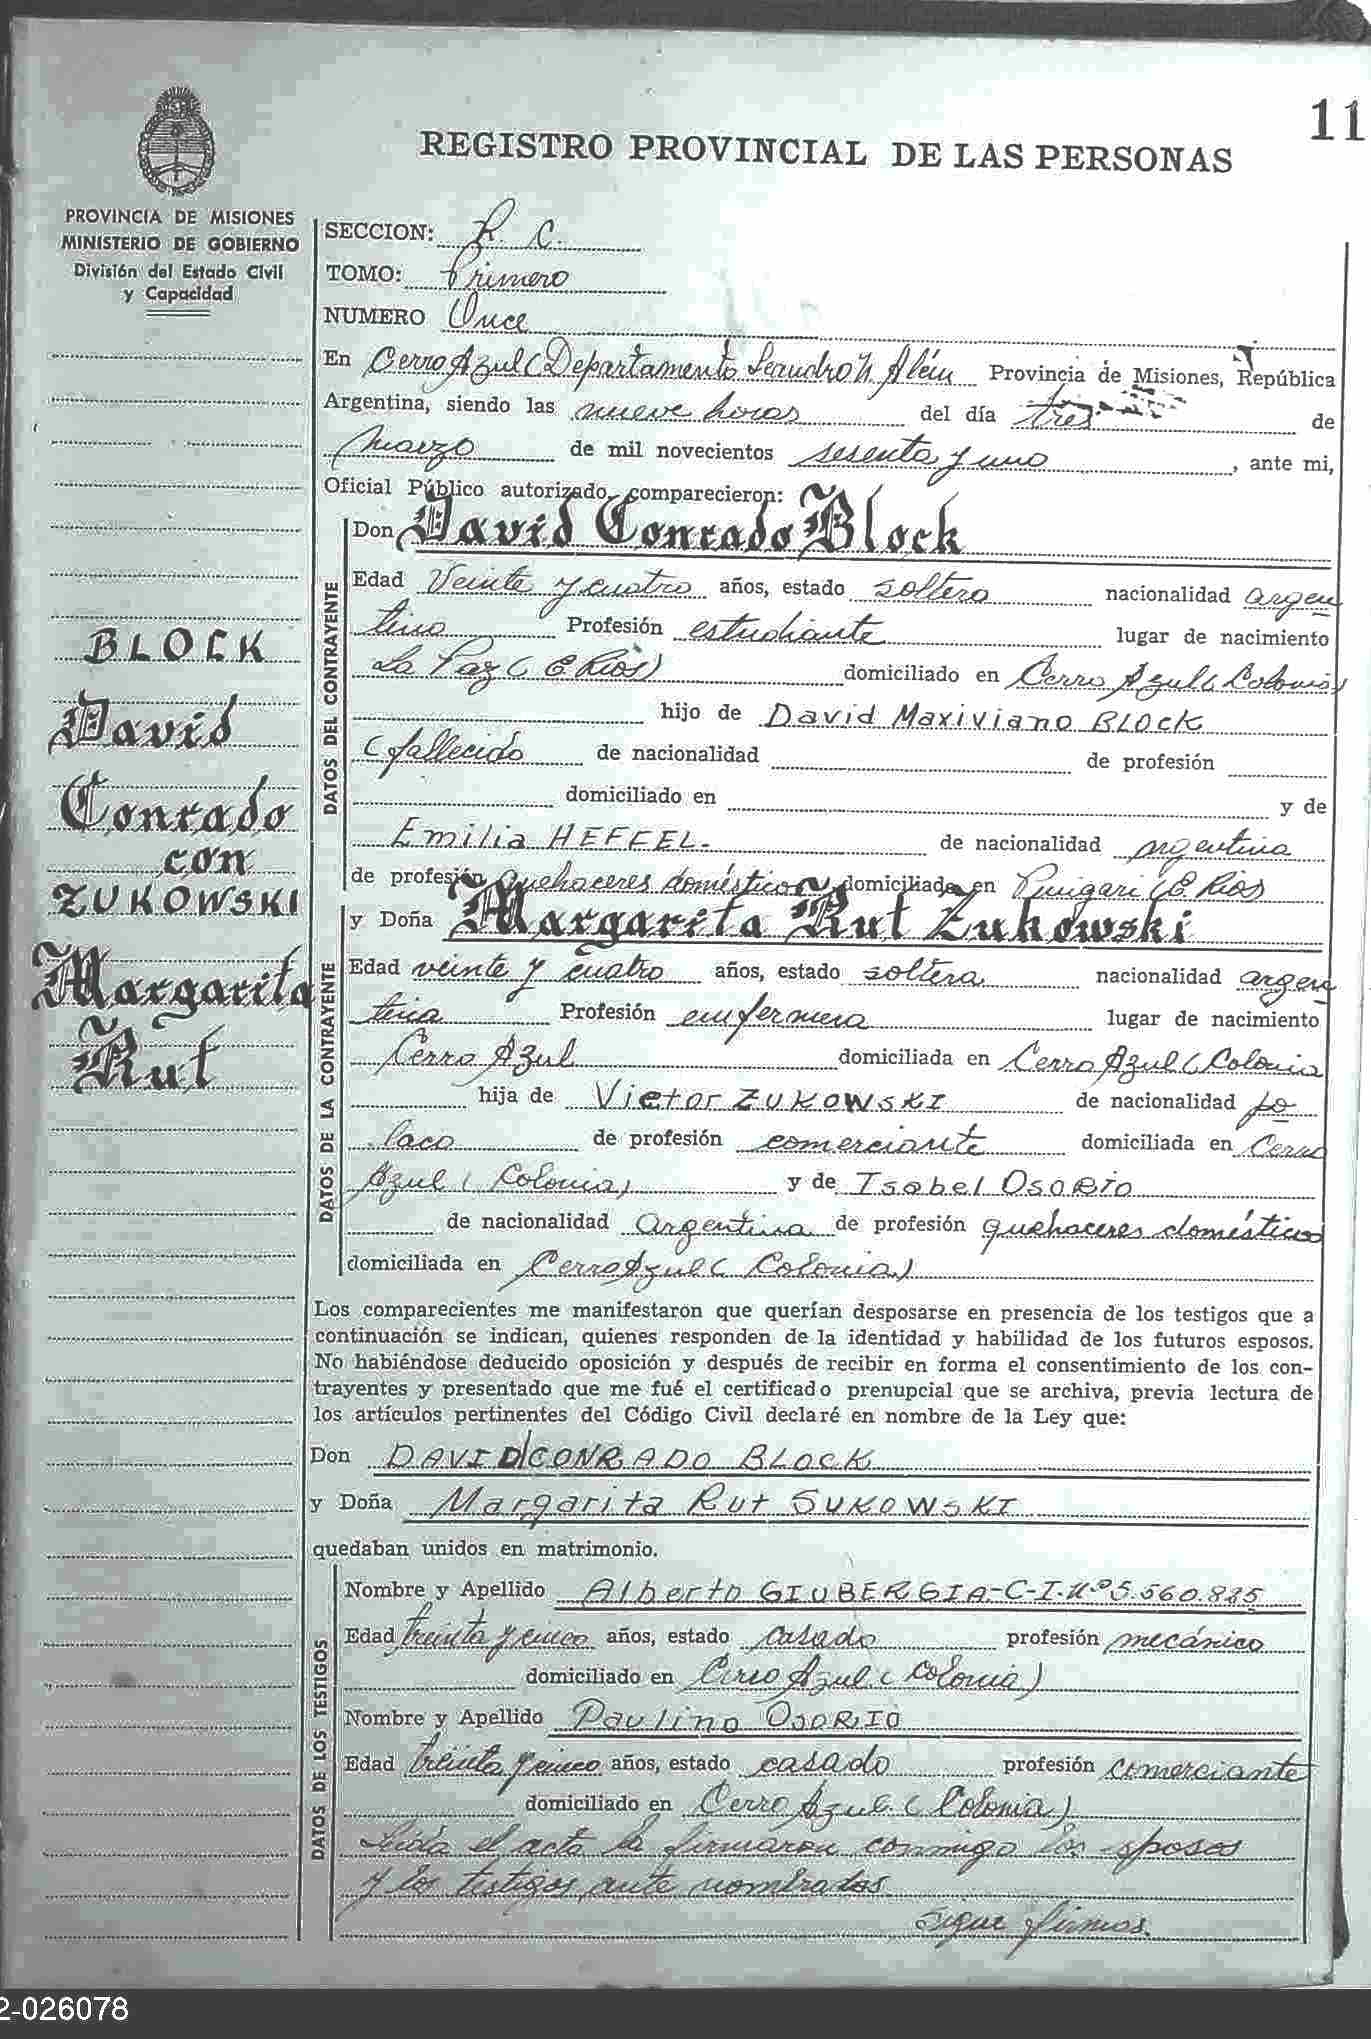 11
REGISTRO PROVINCIAL DE LAS PERSONAS
PROVINCIA DE MISIONES
MINISTERIO DE GOBIERNO
División del Estado Civil
y Capacidad
BLOCK
David
Conrado
con
ZUKOWSKI
Margarita
Rut
SECCION: R. C.
TOMO: Primero
NUMERO Once
En Cerro Azul (Departamento Leandro N. Além Provincia de Misiones, República
Argentina, siendo las nueve horas del día tres de
marzo de mil novecientos sesenta y uno, ante mi,
Oficial Público autorizado, comparecieron:
DATOS DEL CONTRAYENTE
Don David Conrado Block
Edad Veinte y cuatro años, estado soltero nacionalidad argen
tino Profesión estudiante lugar de nacimiento
La Paz (E. Ríos) domiciliado en Cerro Azul (Colonia)
hijo de David Maxiviano BLOCK
(fallecido de nacionalidad de profesión
domiciliado en y de
Emilia HEFFEL.- de nacionalidad argentina
de profesión quehaceres domésticos domiciliada en Puigari (E. Ríos)
DATOS DE LA CONTRAYENTE
y Doña Margarita Rut Zukowski
Edad veinte y cuatro años, estado soltera nacionalidad argen
tina Profesión enfermera lugar de nacimiento
Cerro Azul domiciliada en Cerro Azul (Colonia
hija de Victor ZUKOWSKI de nacionalidad po
laco de profesión comerciante domiciliada en Cerro
Azul (Colonia) y de Isabel OSORIO
de nacionalidad Argentina de profesión quehaceres domésticos
domiciliada en Cerro Azul (Colonia)
Los comparecientes me manifestaron que querían desposarse en presencia de los testigos que a
continuación se indican, quienes responden de la identidad y habilidad de los futuros esposos.
No habiéndose deducido oposición y después de recibir en forma el consentimiento de los con-
trayentes y presentado que me fué el certificado prenupcial que se archiva, previa lectura de
los artículos pertinentes del Código Civil declaré en nombre de la Ley que:
Don DAVID CONRADO BLOCK
y Doña Margarita Rut SUKOWSKI
quedaban unidos en matrimonio.
DATOS DE LOS TESTIGOS
Nombre y Apellido Alberto GIUBERGIA-C-I-Nº 5.560.885
Edad treinta y cinco años, estado casado profesión mecánico
domiciliado en Cerro Azul (Colonia)
Nombre y Apellido Paulino OSORIO
Edad treinta y cinco años, estado casado profesión comerciante
domiciliado en Cerro Azul (Colonia)
Leída el acta la firmaron conmigo los esposos
y los testigos ante nombrados
Sigue firmas.
2-026078